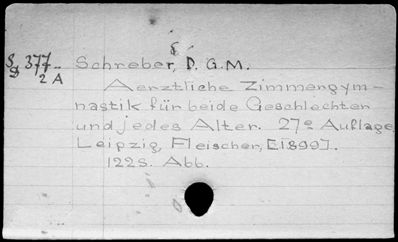 S 377-
g 2A
Schreber, D. G. M.
Aerztliche Zimmergym-
nastik für beide Geschlechter
und jedes Alter. 27e Auflage.
Leipzig, Fleischer, [1899].
122 S. Abb.